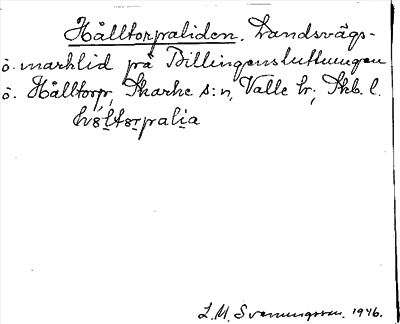 Hålltorpaliden. Landsvägs-
o. marklid på Billingensluttningen
ö. Hålltorp, Skarke s:n, Valle hr, Skb. l.
hɔ̨ltɔrpalia
L. M. Svenungsson. 1946.